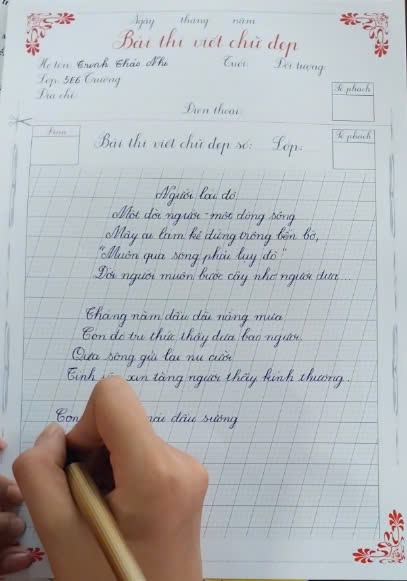 Ngày tháng năm
Bài thi viết chữ đẹp
Họ tên: Trịnh Thảo Nhi Tuổi: Đối tượng:
Lớp: 5E6 Trường
Địa chỉ:
Số phách
Điện thoại:
Điểm
Bài thi viết chữ đẹp số: Lớp:
Số phách
Người lái đò
Một đời người - một dòng sông
Mấy ai làm kẻ đứng trông bến bờ,
"Muốn qua sông phải lụy đò"
Đời người muốn bước cậy nhờ người đưa...
Tháng năm dầu dãi nắng mưa
Con đò trí thức thầy đưa bao người.
Qua sông gửi lại nụ cười
Tình xin tặng người thầy kính thương.
Con mái đầu sương